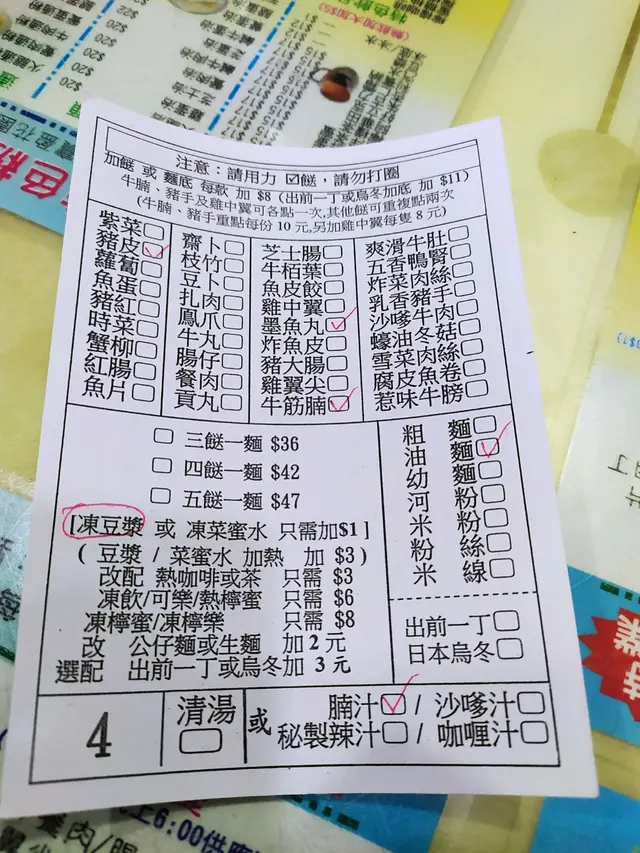 注意：請用力 ☑餸，請勿打圈
加餸 或 麵底 每款 加 $8 (出前一丁或烏冬加底 加 $11)
牛腩、豬手及雞中翼可各點一次,其他餸可重複點兩次
(牛腩、豬手重點每份 10 元,另加雞中翼每隻 8 元)
紫菜
豬皮
蘿蔔
魚蛋
豬紅
時菜
蟹柳
紅腸
魚片
齋卜
枝竹
豆卜
扎肉
鳳爪
牛丸
腸仔
餐肉
貢丸
芝士腸
牛栢葉
魚皮餃
雞中翼
墨魚丸
炸魚皮
豬大腸
雞翼尖
牛筋腩
爽滑牛肚
五香鴨腎
炸菜肉絲
乳香豬手
沙嗲牛肉
蠔油冬菇
雪菜肉絲
腐皮魚卷
惹味牛膀
三餸一麵 $36
四餸一麵 $42
五餸一麵 $47
[凍豆漿 或 凍菜蜜水 只需加$1]
( 豆漿 / 菜蜜水 加熱 加 $3 )
改配 熱咖啡或茶 只需 $3
凍飲/可樂/熱檸蜜 只需 $6
凍檸蜜/凍檸樂 只需 $8
改 公仔麵或生麵 加 2 元
選配 出前一丁或烏冬加 3 元
粗 麵
油 麵
幼 麵
河 粉
米 粉
粉 絲
米 線
出前一丁
日本烏冬
4
清湯
或
腩汁 / 沙嗲汁
秘製辣汁 / 咖喱汁